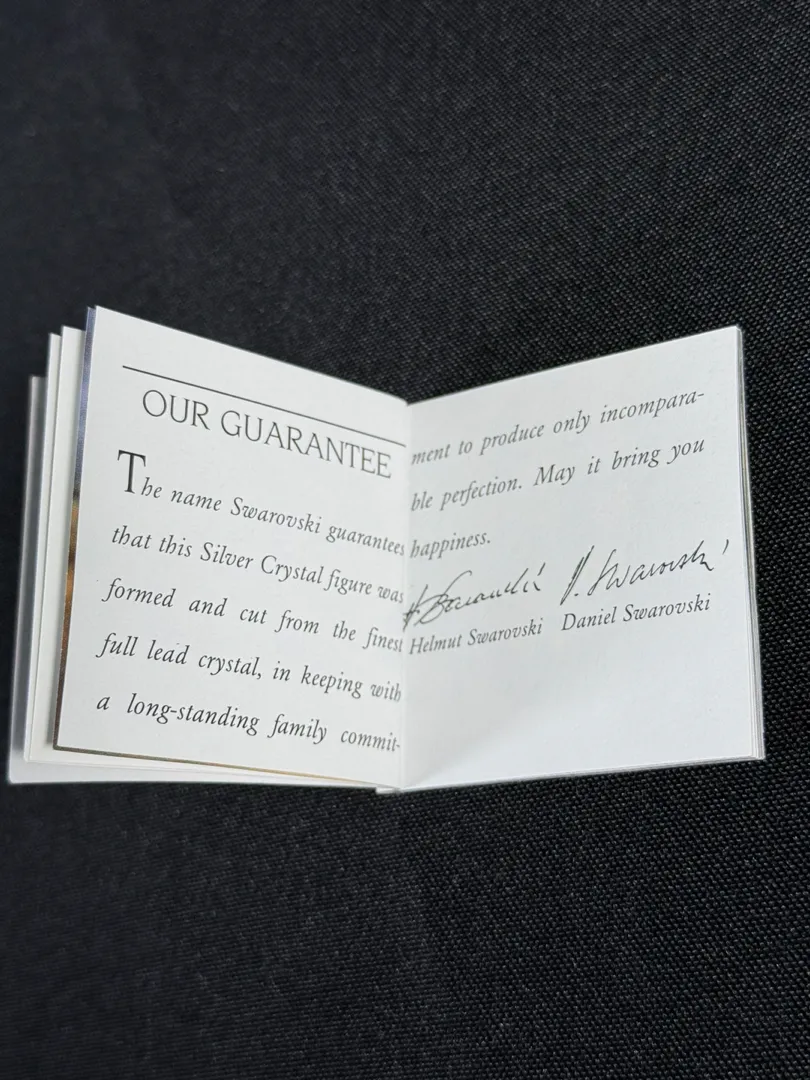 OUR GUARANTEE
The name Swarovski guarantees
that this Silver Crystal figure was
formed and cut from the finest
full lead crystal, in keeping with
a long-standing family commit-
ment to produce only incompara-
ble perfection. May it bring you
happiness.
H. Swarovski D. Swarovski
Helmut Swarovski Daniel Swarovski